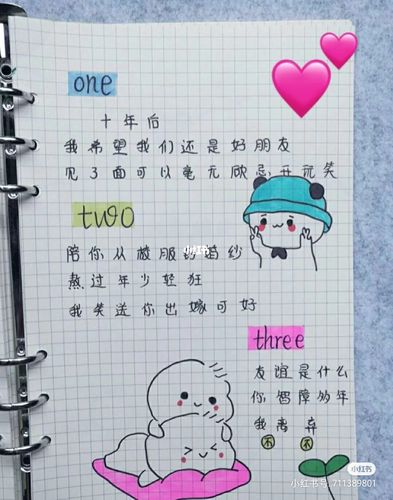 one
十年后
我希望我们还是好朋友
见了面可以毫无顾忌开玩笑
two
陪你从校服到婚纱
小红书
熬过年少轻狂
我笑送你出嫁可好
three
友谊是什么
你智障多年
我离弃
不 不
小红书
小红书号: 711389801